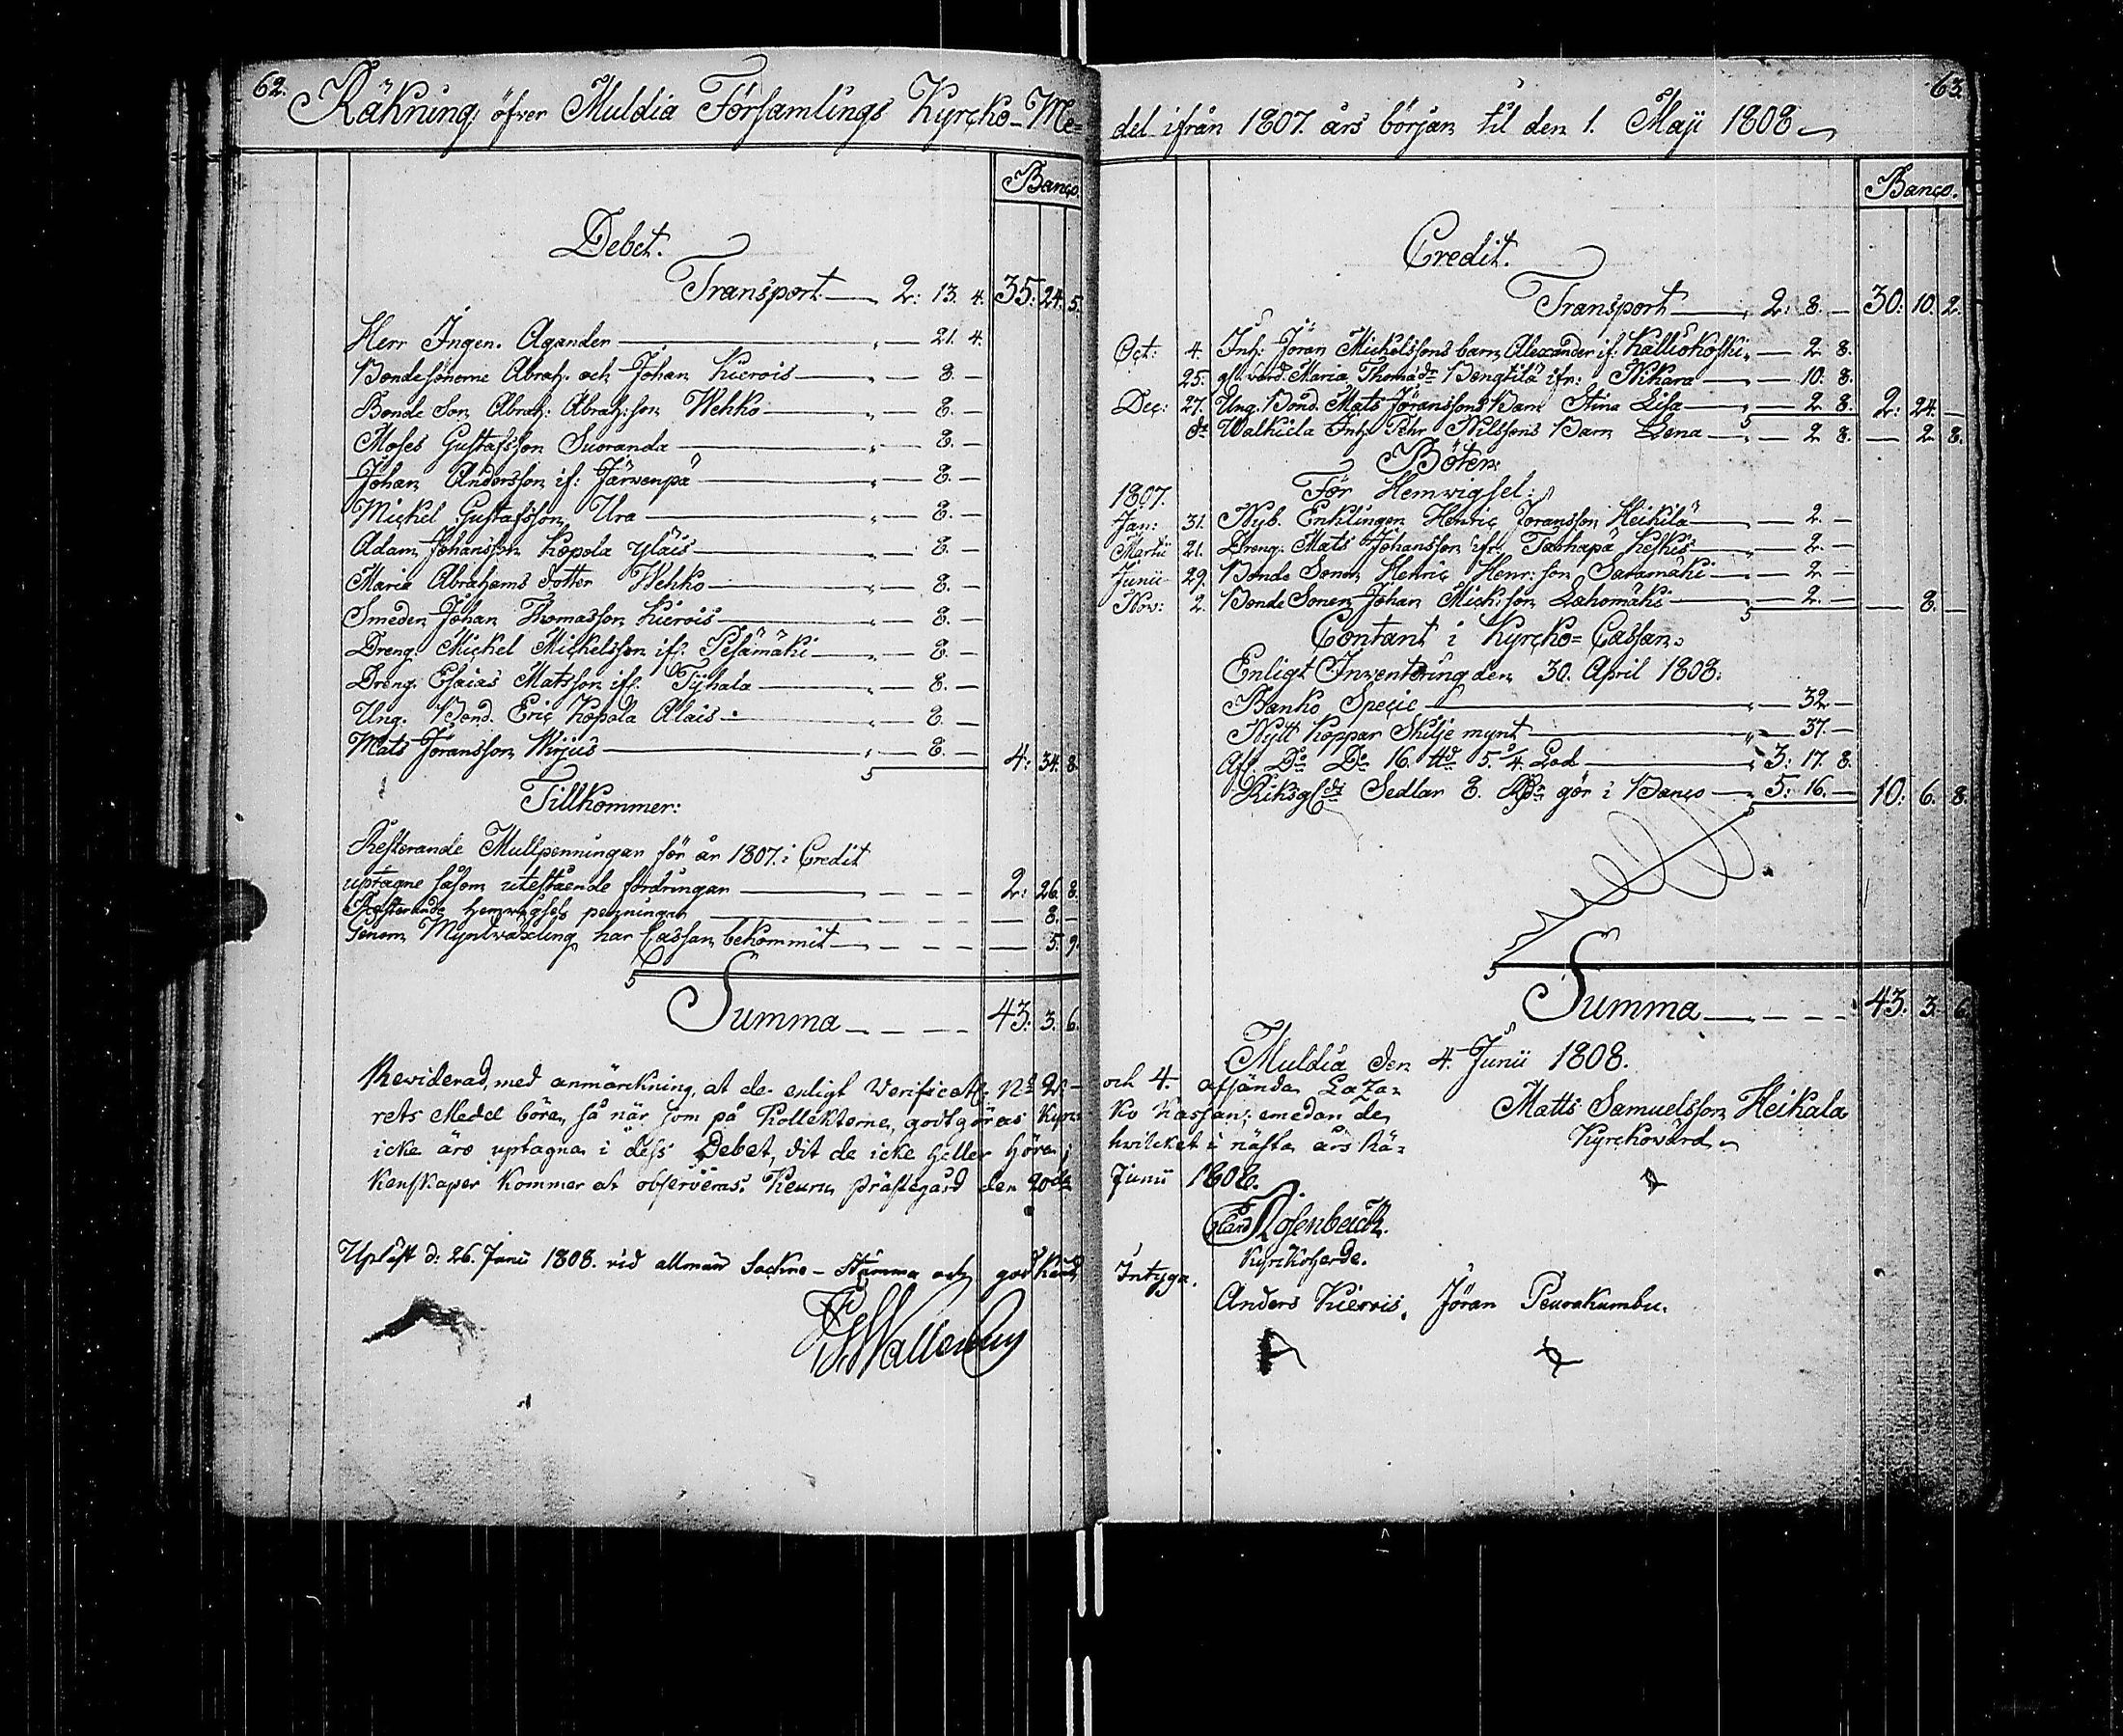 62.
Räkning öfver Muldia Församlings Kyrcko-Me=
Banco.
Debet.
Transport — 2: 13. 4. 35: 24. 5.
Herr Ingen. Agander — " — 21. 4.
Bondesönerne Abrah. och Johan Kierois — " — 8. —
Bonde Son Abrah: Abrah:son Wehko — " — 8. —
Moses Gustafsson Suoranda — " — 8. —
Johan Andersson if: Järwenpä — " — 8. —
Mickel Gustafsson Ura — " — 8. —
Adam Johansson Kopola yläis — " — 8. —
Maria Abrahams dotter Wehko — " — 8. —
Smeden Johan Thomasson Kierois — " — 8. —
Dreng. Mickel Mickelsson if: Pesämäki — " — 8. —
Dreng. Esaias Matsson if: Tyhala — " — 8. —
Ung. Bond. Eric Kopola Alais — " — 8. —
Mats Jöransson Wirjus — " — 8. — 4: 34. 8.
Tillkommer:
Resterande Mullpenningar för år 1807. i Credit
uptagne såsom utestående fordringar — 2: 26. 8.
Resterande hemwigsels penningar — 8. —
Genom Myntwäxling har Cassan bekommit — 5. 9.
Summa — 43: 3. 6.
Reviderad, med anmärckning, at de enligt Verificat: N° 2.
rets Medel böra, så när som på Kollekterne, godtgöras Kyr=
icke äro uptagna i dess Debet, dit de icke heller höra;
kenskaper kommer at observeras. Keuru Prästegård den 20de
Upläst d: 26. Junii 1808. vid allmän Sockne-Stämma och godkänd
63.
del ifrån 1807. års början til den 1. Maji 1808
Banco.
Credit.
Transport — 2: 8. — 30: 10. 2.
Oct: 4. Inh: Jöran Mickelssons barn Alexander if: Kalliokoski — 2. 8.
25. Maria Thomædr Bengtilä ifr: Nikara — 10: 8.
Dec: 27. Ung. Bond. Mats Jöranssons Barn Stina Lisa — 2. 8. 2: 24. —
do Walkiela Inh: Pehr Nilssons Barn Lena — 2. 8. — 2. 8.
Böter:
För Hemwigsel:
1807.
Jan: 31. Nyb. Enklingen Henric Jöransson Heikilä — 2. —
Martii 21. Dreng. Mats Johansson ifr: Tarhapä Keskis — 2. —
Junii 29. Bonde Sonen Henric Henr:son Saramäki — 2. —
Nov: 2. Bonde Sonen Johan Mick:son Lahomäki — 2. — — 8. —
Contant i Kyrcko=Cassan:
Enligt Inventering den 30. April 1808:
Banko Specie — 32 —
Nytt Koppar Skilje mynt — 37. —
Do Do 16. 5. 3/4. Lod — 3: 17. 8.
Riksg Sedlar 8. Rdr gör i Banco — 5: 16. — 10: 6. 8.
Summa — 43. 3. 6.
Muldia den 4. Junii 1808.
Matts Samuelsson Heikala
Kyrckowärd
och 4. afsända Laza=
ko Kassan; emedan de
hvilcket i nästa års Rä=
Junii 1808.
Rosenback.
Kyrkoherde.
Intyga.
Anders Kierois. Jöran Peurakumbu.